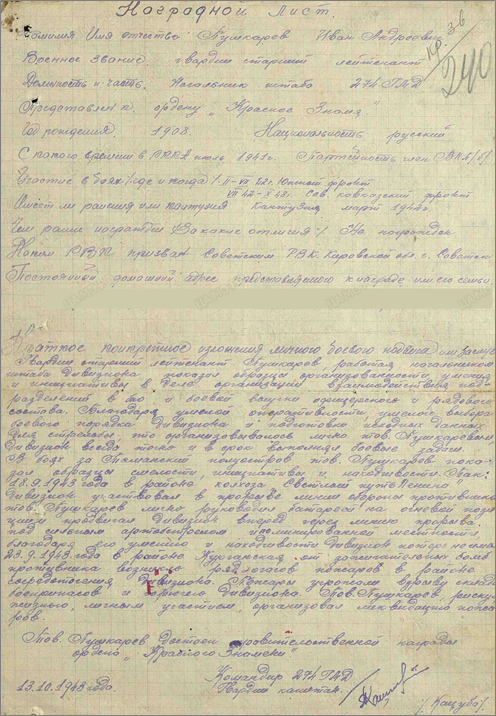 Наградной Лист.
Фамилия Имя отчество Пушкарев Иван Андреевич
Военное звание гвардии старший лейтенант
Должность и часть. Начальник штаба 274 ГМД
Представлен к ордену „Красное Знамя"
Год рождения. 1908. Национальность русский
С какого времени в РККА июль 1941г. Партийность член ВКП/б/
Участие в боях /где и когда/ Южный фронт
Сев. кавказский фронт
Имеет ли ранения или контузия Контузия март 1942г.
Чем ранее награжден за какие отличия /. Не награжден
Каким РВК призван Советским РВК. Кировской обл. г. Советск
Постоянный домашний адрес представляемого к награде или его семьи
240
Краткое конкретное изложения личного боевого подвига или заслуг
Гвардии старший лейтенант Пушкарев работая начальником
штаба Дивизиона показал образцы организованности умения
и инициативы в деле организации взаимодействия под-
разделений в бою и боевой выучки офицерского и рядового
состава. Благодаря умелой оперативности умелого выбора
боевого порядка Дивизиона и подготовки исходных данных
для стрельбы это организовывалось лично тов. Пушкаревым
Дивизион всегда точно и в срок выполнял боевые задачи.
В боях за Таманский полуостров тов. Пушкарев пока-
зал образцы смелости, инициативы и находчивости. Так:
18.9.1943 года в районе колхоза Светлый путь Ленина
Дивизион участвовал в прорыве линии обороны противника
тов. Пушкарев лично руководил батареей на огневой пози-
ции продвигая Дивизион вперед через линию прорыва.
под сильным артогнем по минированной местности.
Благодаря его умению и находчивости Дивизион потерь не имел
23.9.1943 года в районе Курганская от зажигательных бомб
противника возник ряд очагов пожаров в районе
сосредоточения Дивизиона. Пожары угрожали взрыву склада
боеприпасов и Дивизиона. Тов. Пушкарев рискуя
жизнью, личным участием, организовал ликвидацию пожа-
ров.
Тов. Пушкарев достоен правительственной награды
ордена „Красного Знамени"
Командир 274 ГМД
Гвардии капитан.
13.10.1943 года.
/. Кацуба/.